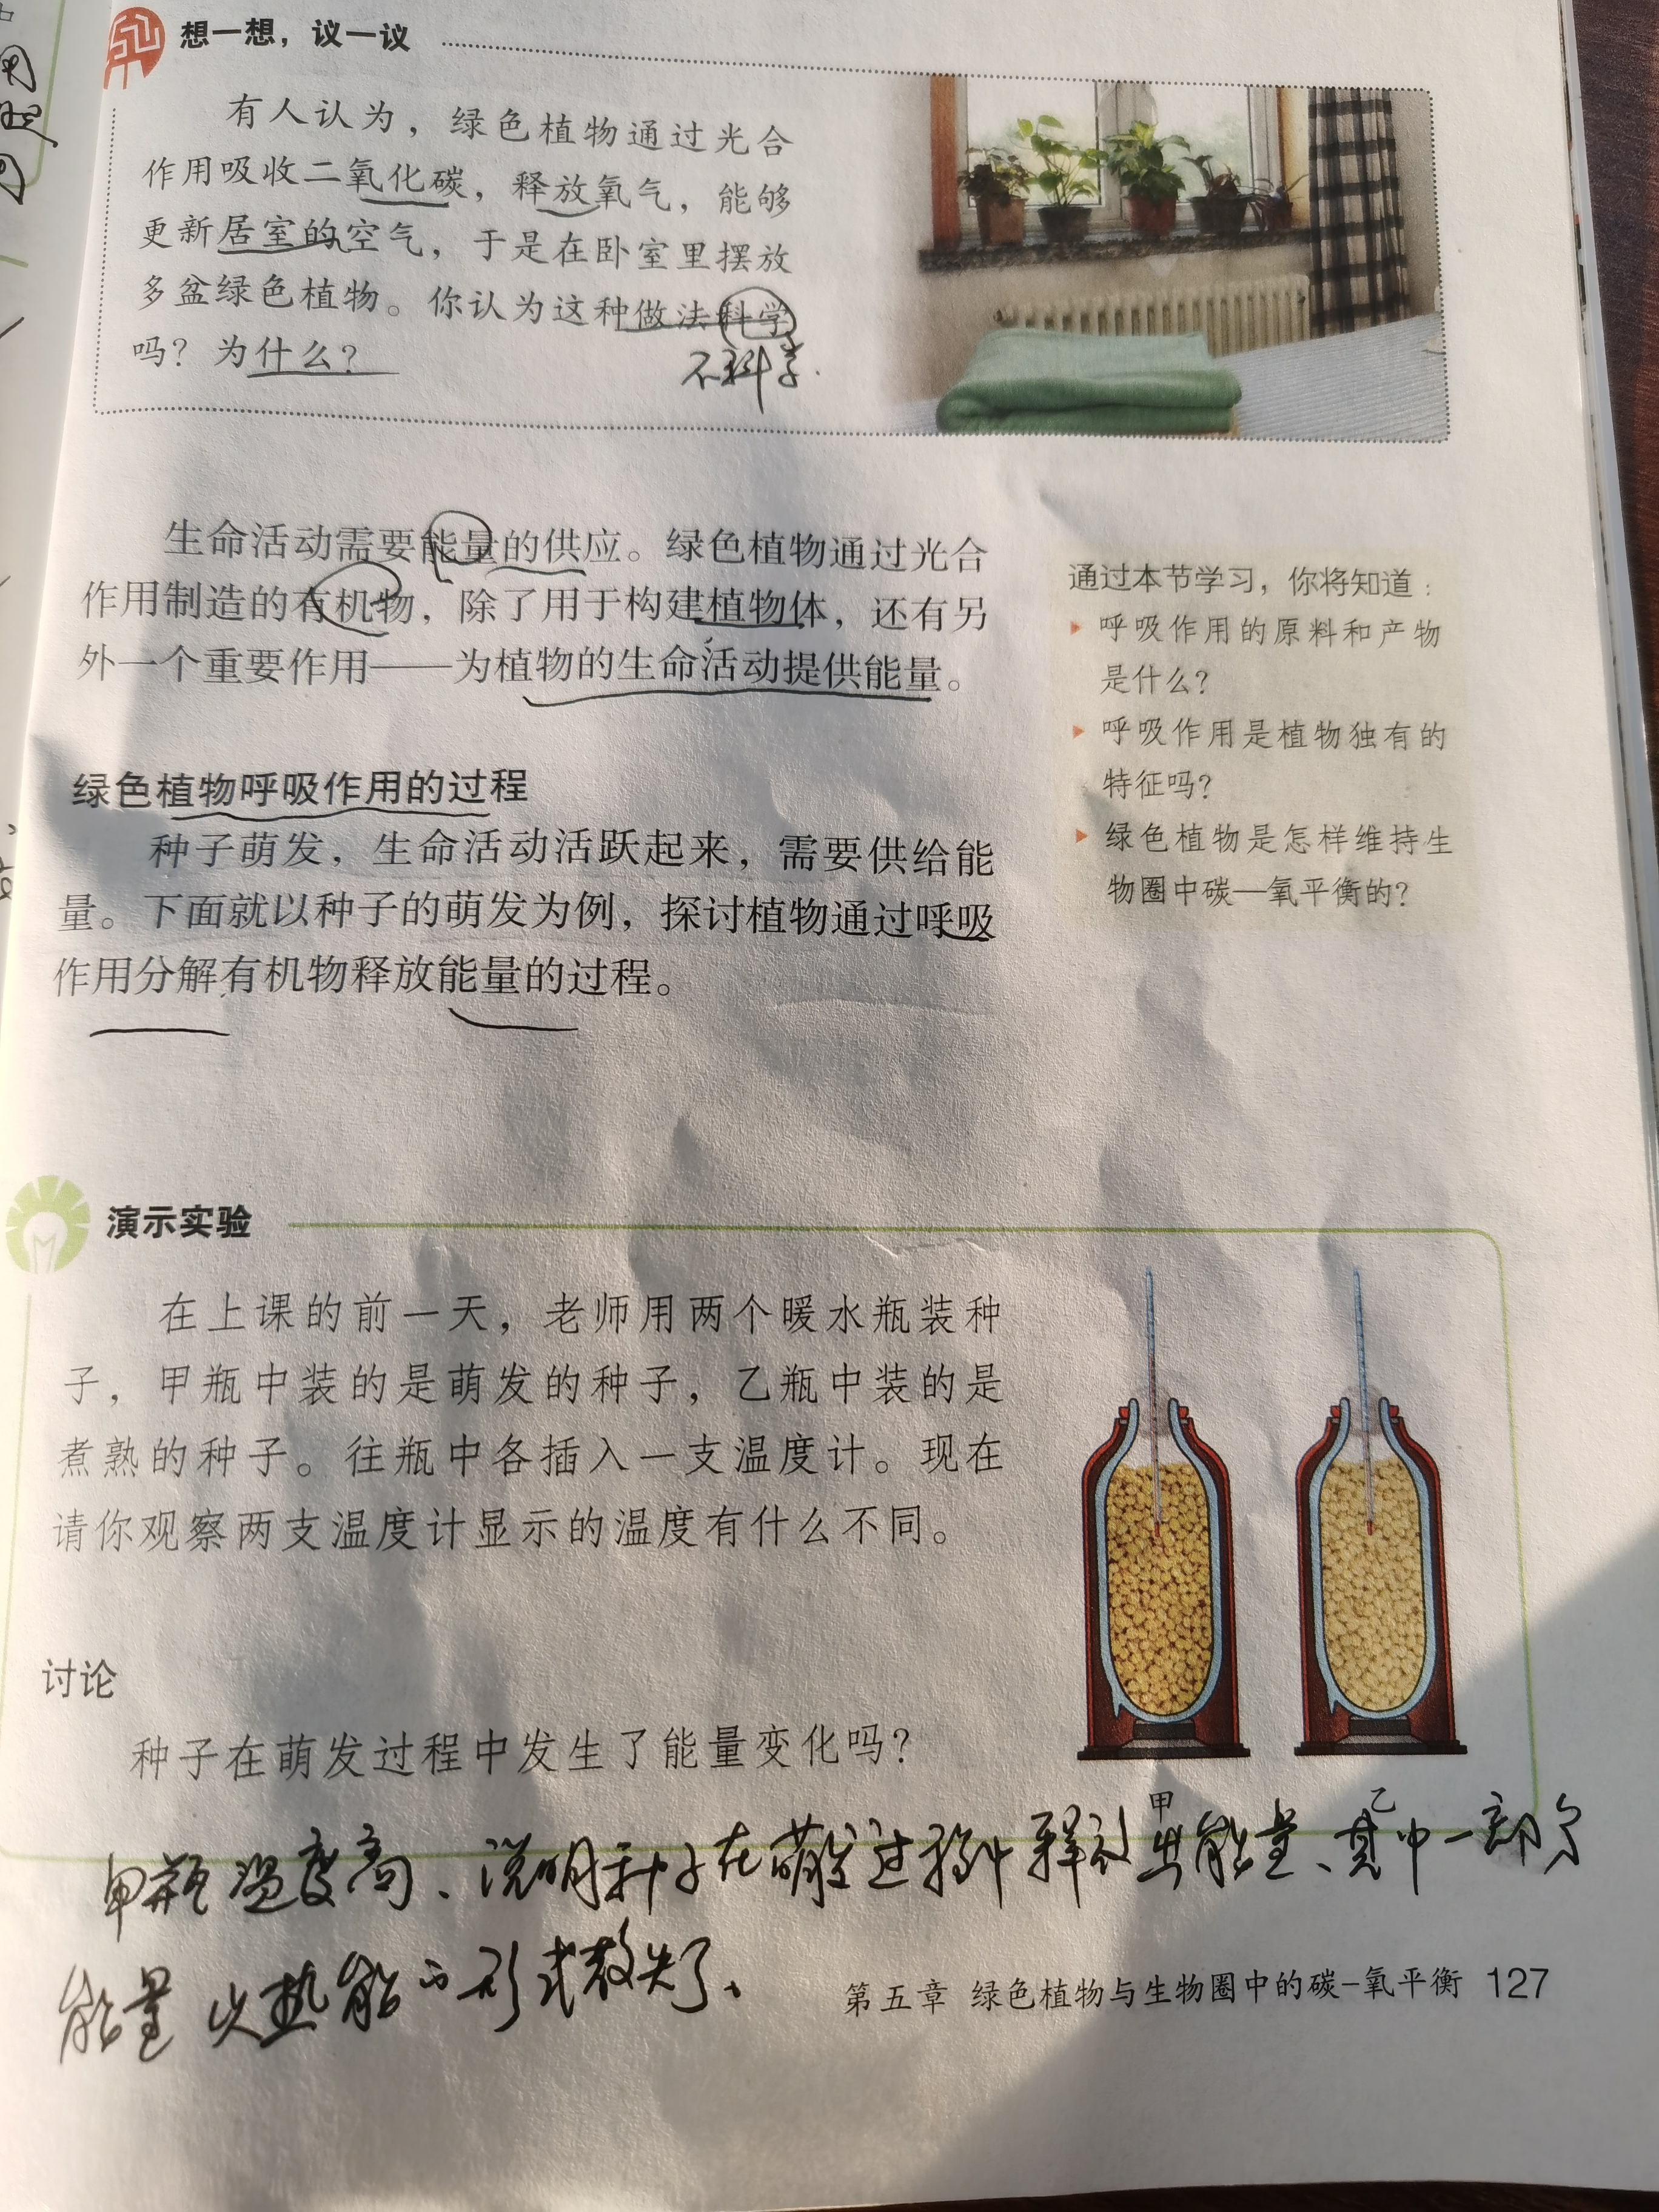 想一想，议一议
有人认为，绿色植物通过光合
作用吸收二氧化碳，释放氧气，能够
更新居室的空气，于是在卧室里摆放
多盆绿色植物。你认为这种做法科学
吗？为什么？
不科学.
生命活动需要能量的供应。绿色植物通过光合
作用制造的有机物，除了用于构建植物体，还有另
外一个重要作用——为植物的生命活动提供能量。
通过本节学习，你将知道：
呼吸作用的原料和产物
是什么？
呼吸作用是植物独有的
特征吗？
绿色植物是怎样维持生
物圈中碳—氧平衡的？
绿色植物呼吸作用的过程
种子萌发，生命活动活跃起来，需要供给能
量。下面就以种子的萌发为例，探讨植物通过呼吸
作用分解有机物释放能量的过程。
演示实验
在上课的前一天，老师用两个暖水瓶装种
子，甲瓶中装的是萌发的种子，乙瓶中装的是
煮熟的种子。往瓶中各插入一支温度计。现在
请你观察两支温度计显示的温度有什么不同。
讨论
种子在萌发过程中发生了能量变化吗？
甲 乙
甲瓶温度高、说明种子在萌发过程中释放出能量、其中一部分
能量以热能的形式散失了、
第五章 绿色植物与生物圈中的碳-氧平衡 127